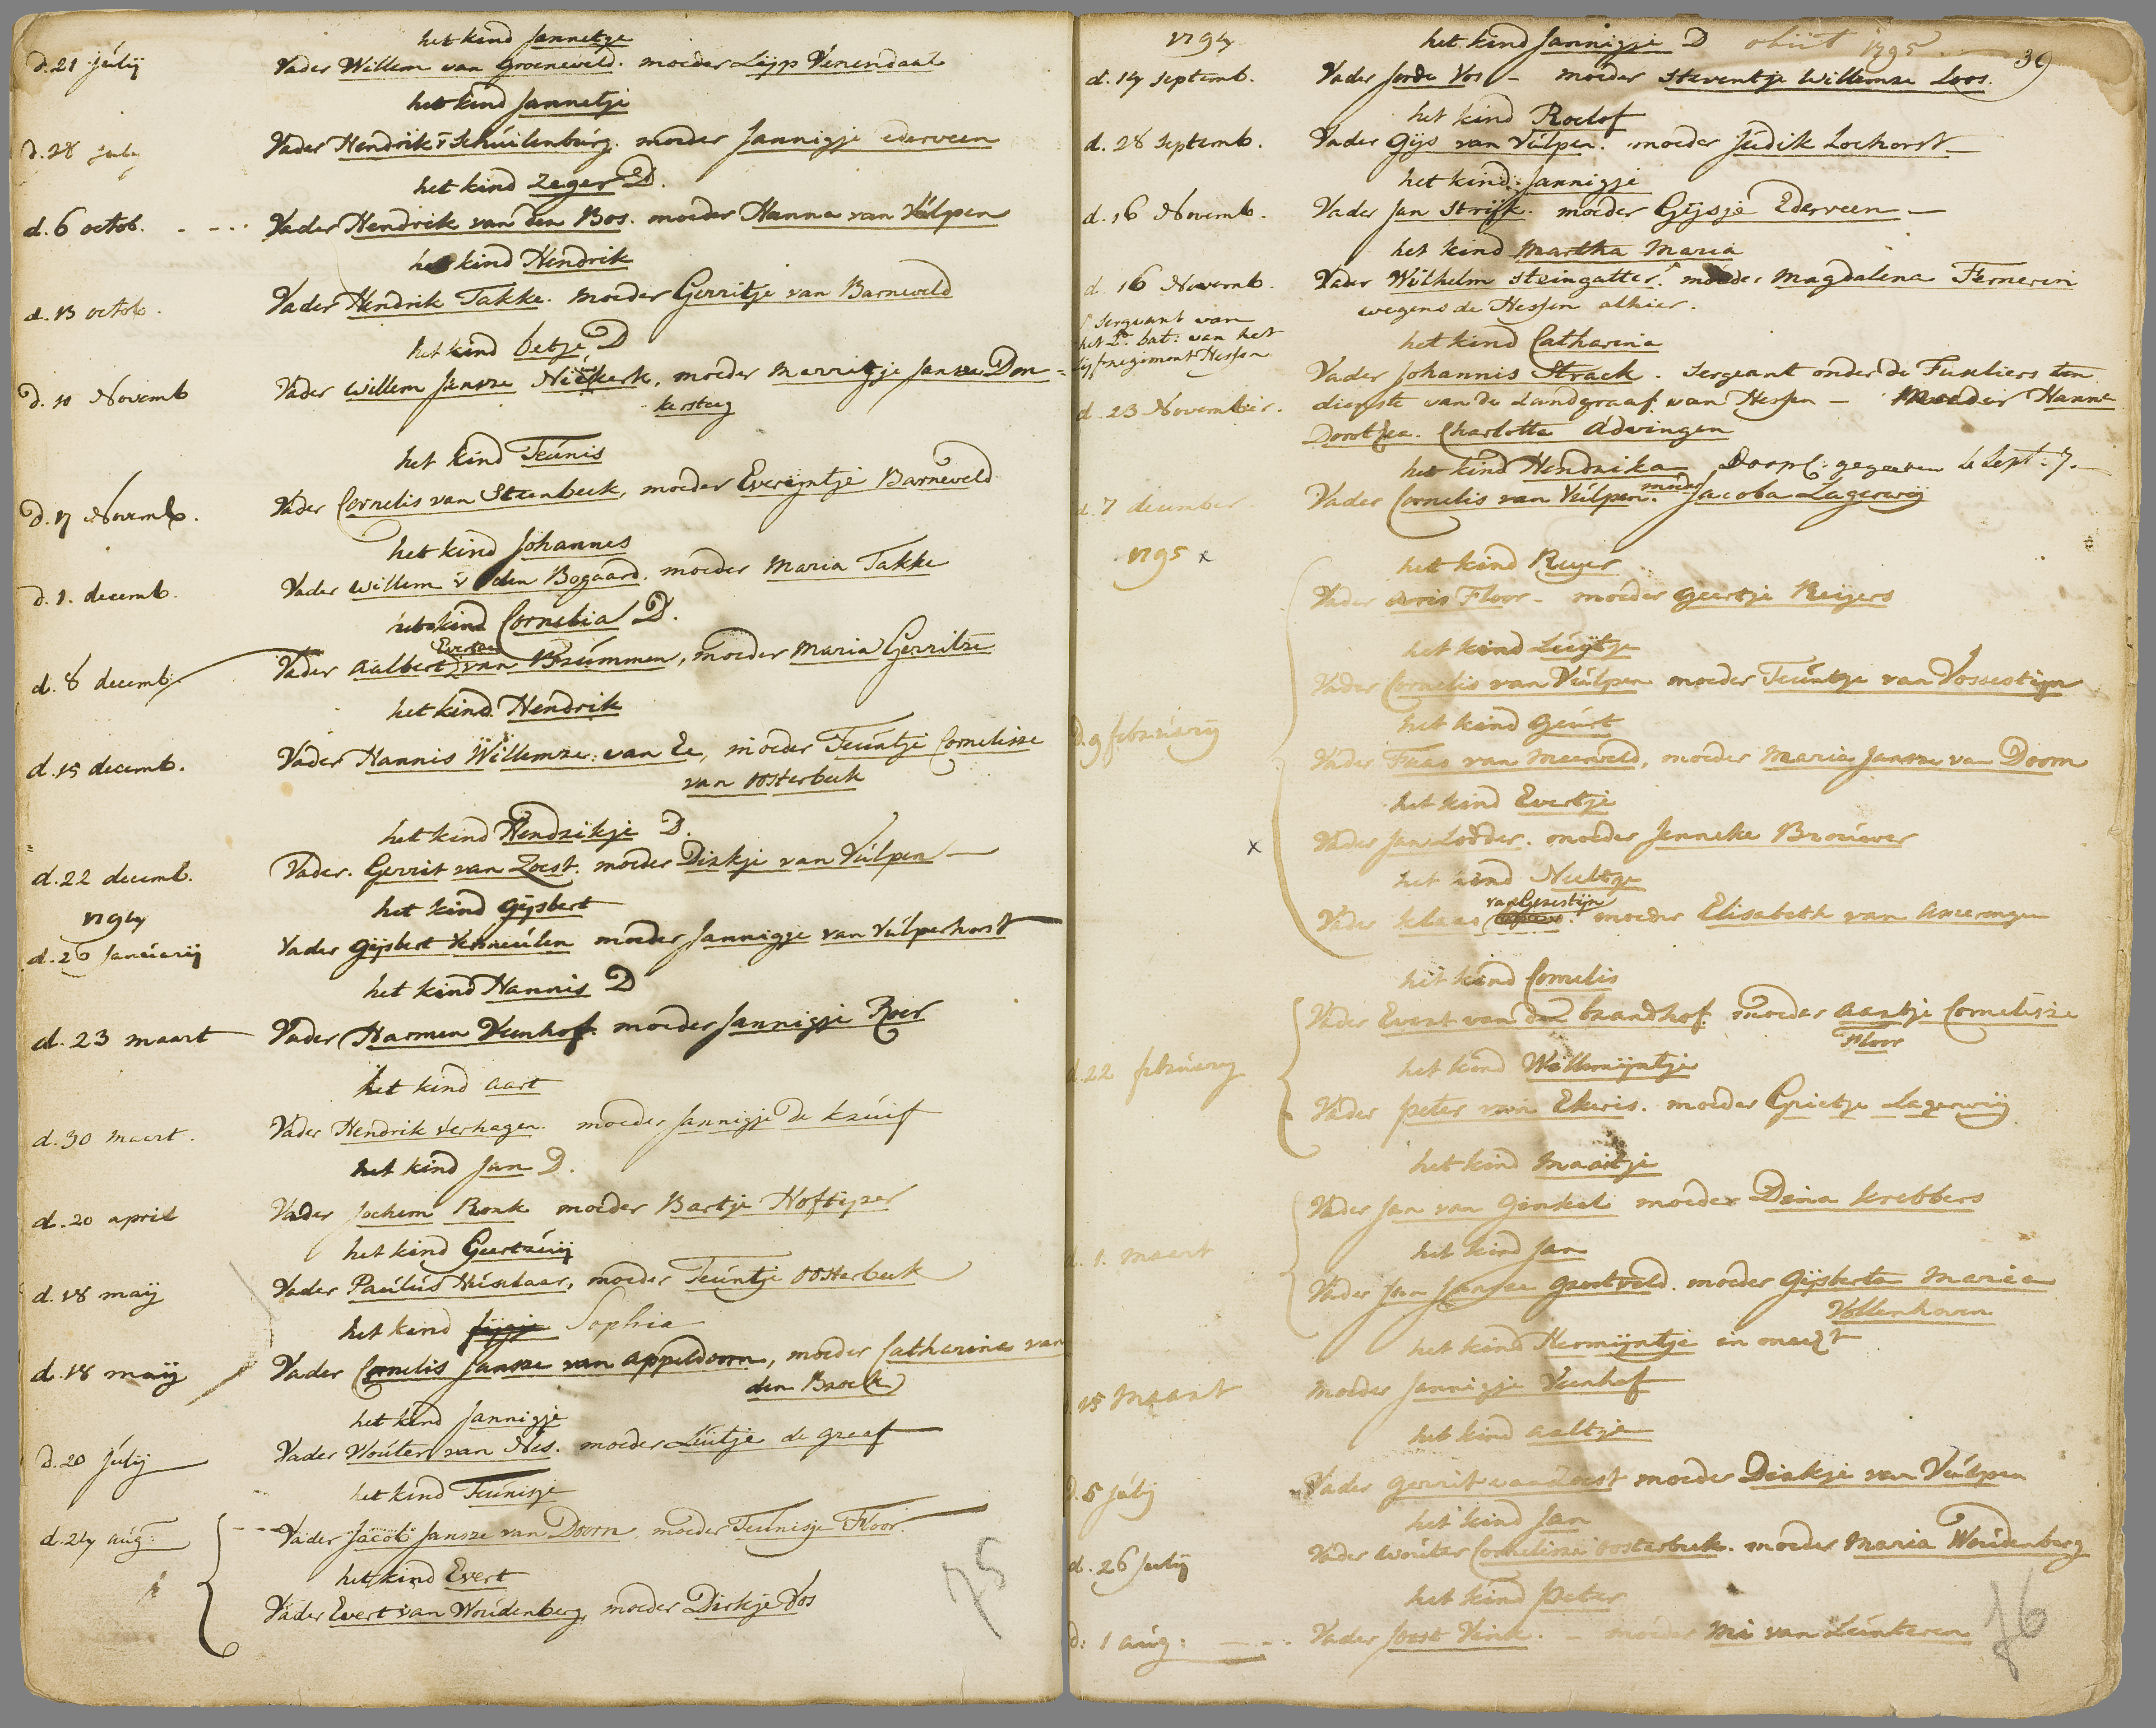 het kind Jannetje
d. 21 julij Vader Willem van Groeneveld. moeder Lijsp Venendaal
het kind Jannetje
d. 28 july Vader Hendrik v Schuilenburg. moeder Jannigje ederveen
het kind Zeger D.
d. 6 octob. Vader Hendrik van den Bos. moeder Hanna van Vúlpen
het kind Hendrik
d. 13 octob. Vader Hendrik Takke. moeder Gerritje van Barneveld
het kind betje D
d. 10 Novemb Vader Willem Jansze Niekerk, moeder Merrigje Jansze Don=
kersteeg
het kind Teúnis
d. 17 Novemb. Vader Cornelis van Steenbeek, moeder Everijntje Barneveld
het kind Johannes
d. 1. decemb. Vader Willem v den Bogaard. moeder Maria Takke
het kind Cornelia D.
Evertse
d. 8 decemb: Vader aalbert van Brúmmen, moeder Maria Gerritze
het kind Hendrik
d. 15 decemb. Vader Hannis Willemze van Ee, moeder Teúntje Cornelisze
van Oosterbeek
het kind Hendrikje D.
d. 22 decemb. Vader. Gerrit van Zoest. moeder Dirkje van Vúlpen
1794
het kind Gijsbert
d. 26 Janúarij Vader Gijsbert Vermeúlen moeder Jannigje van Vúlperhorst
het kind Hannis D
d. 23 maart Vader Harmen Veenhof. moeder Jannigje Roer
het kind aart
d. 30 maart. Vader Hendrik Verhagen. moeder Jannigje de kruif
het kind Jan D.
d. 20 april Vader Jochem Ronk moeder Bartje Hoftijzer
het kind Geertruij
d. 18 maij Vader Paúlús Húselaar, moeder Teúntje Oosterbeek
het kind Sijgje Sophia
d. 18 maij Vader Cornelis Jansze van Appeldoorn, moeder Catharina van
den Broek
het kind Jannigje
d. 20 júlij Vader Woúter van Nes. moeder Lúitje de graaf
het kind Teúnisje
d. 24 aúg: Vader Jacob Jansze van Doorn moeder Teúnisje Floor.
het kind Evert
Vader Evert van Woúdenberg, moeder Dirkje Vos
75
1794
39
het kind Jannigje D obiit 1795
d. 14 septemb. Vader Jorde Vos - moeder Steventje Willemze Loos.
het kind Roelof
d. 28 septemb. Vader Gijs van Vúlpen. moeder Júdik Lochorst
het kind Jannigje
d. 16 Novemb. Vader Jan Strijk. moeder Gijsje Ederveen
het kind Martha Maria
d. 16 Novemb. Vader Wilhelm Steingatter. moeder Magdalena Fernerin
wegens de Hessen alhier.
Sergeant van
het 2e bat: van het
lijfregiment Hessen
het kind Catharina
Vader Johannis Strack. Sergeant onder de Fuseliers ten
d. 23 November. dienste van de Landgraaf van Hessen - Moeder Hanna
Dorothea. Charlotta Advingen
het kind Hendrika Doopcl: gegeeven Sept: 7.
d. 7 december. Vader Cornelis van Vúlpen. moeder Jacoba Lagerwij
1795 x
het kind Reyer
Vader Aris Floor - moeder Geertje Reijers
het kind Luijtje
Vader Cornelis van Vúlpen moeder Teúntje van Vossestijn
d. 9 februarij
het kind Geurt
Vader Faas van Meerveld, moeder Maria Jansze van Doorn
het kind Evertje
x
Vader Jan Lodder. moeder Jenneke Broúwer
het kind Neeltje
van Geresteijn
Vader Klaas moeder Elisabeth van Amerongen
het kind Cornelis
Vader Evert van den brandhof. moeder aartje Cornelisze
Floor
d. 22 februarij
het kind Willemijntje
Vader peter van Ekeris. moeder Grietje Lagerwij
het kind Maaitje
Vader Jan van Ginkel moeder Dina krebbers
d. 1. maart
het kind Jan
Vader Jan Jansze Grootveld. moeder Gijsberta Maria
Vollenhoven
het kind Hermijntje in onecht
15 Maart moeder Jannigje Veenhof
het kind aaltje
d. 5 júlij Vader Gerrit van Zoest moeder Dirkje van Vúlpen
het kind Jan
d. 26 Julij Vader Woúter Cornelisze Oosterbeek. moeder Maria Woúdenberg
het kind Peter
d: 1 aúg: Vader Joost Vink. - moeder Mi van Lúnteren
76